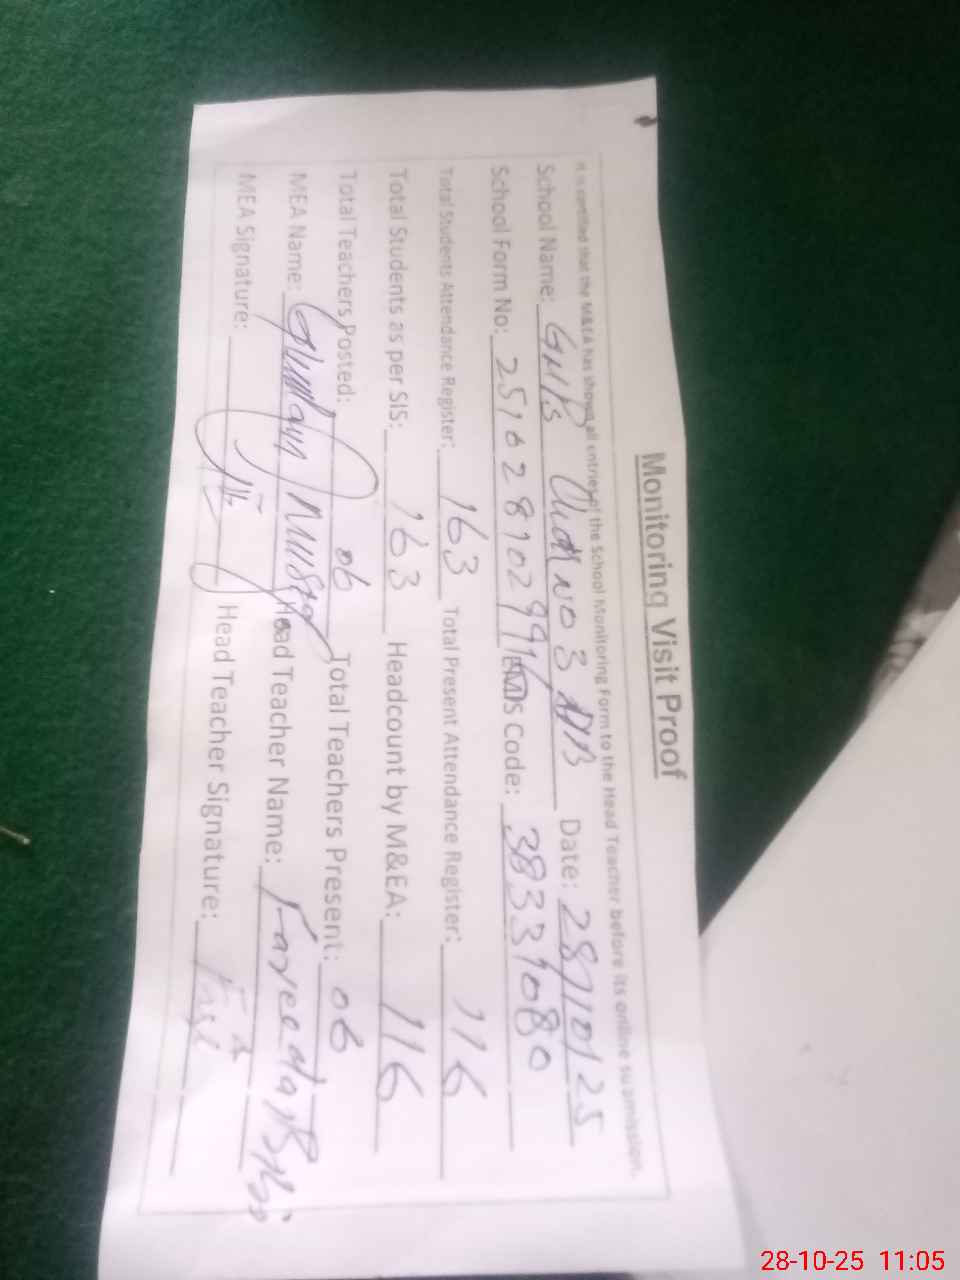 Monitoring Visit Proof
It is certified that the M&EA has shown all entries of the School Monitoring Form to the Head Teacher before its online submission.
School Name: No 3 Date: 28/10/25
School Form No: EMIS Code: 38331080
Total Students Attendance Register: 163 Total Present Attendance Register: 116
Total Students as per SIS: 163 Headcount by M&EA: 116
Total Teachers Posted: 06 Total Teachers Present: 06
MEA Name: Head Teacher Name: Fareeda Bibi
MEA Signature: Head Teacher Signature:
28-10-25 11:05